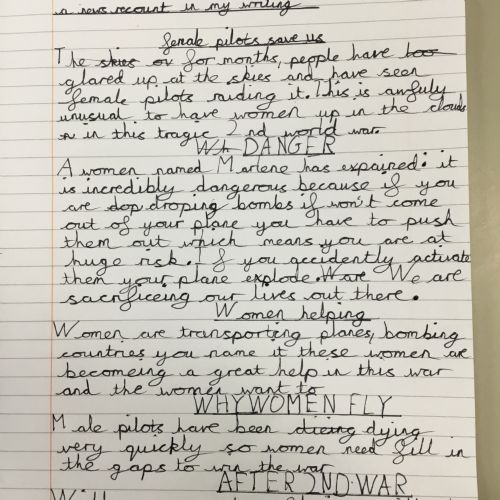 in news recount in my writing
female pilots save us
The skies ov for months, people have loo
glared up at the skies and have seen
female pilots raiding it. This is awfuly
unusual to have women up in the clouds
in in this tragic 2nd world war.
Wh DANGER
A women named Marlene has expained: it
is incredibly dangerous because if you
are dop droping bombs if won't come
out of your plane you have to push
them out which means you are at
huge risk. If you accidently activate
them your plane explode. Ware We are
sacrificeing our lives out there.
Women helping
Women are transporting planes, bombing
countries you name it these women are
becomeing a great help in this war
and the women want to
WHY WOMEN FLY
Male pilots have been dieing dying
very quickly so women need fill in
the gaps to win the war
AFTER 2ND WAR